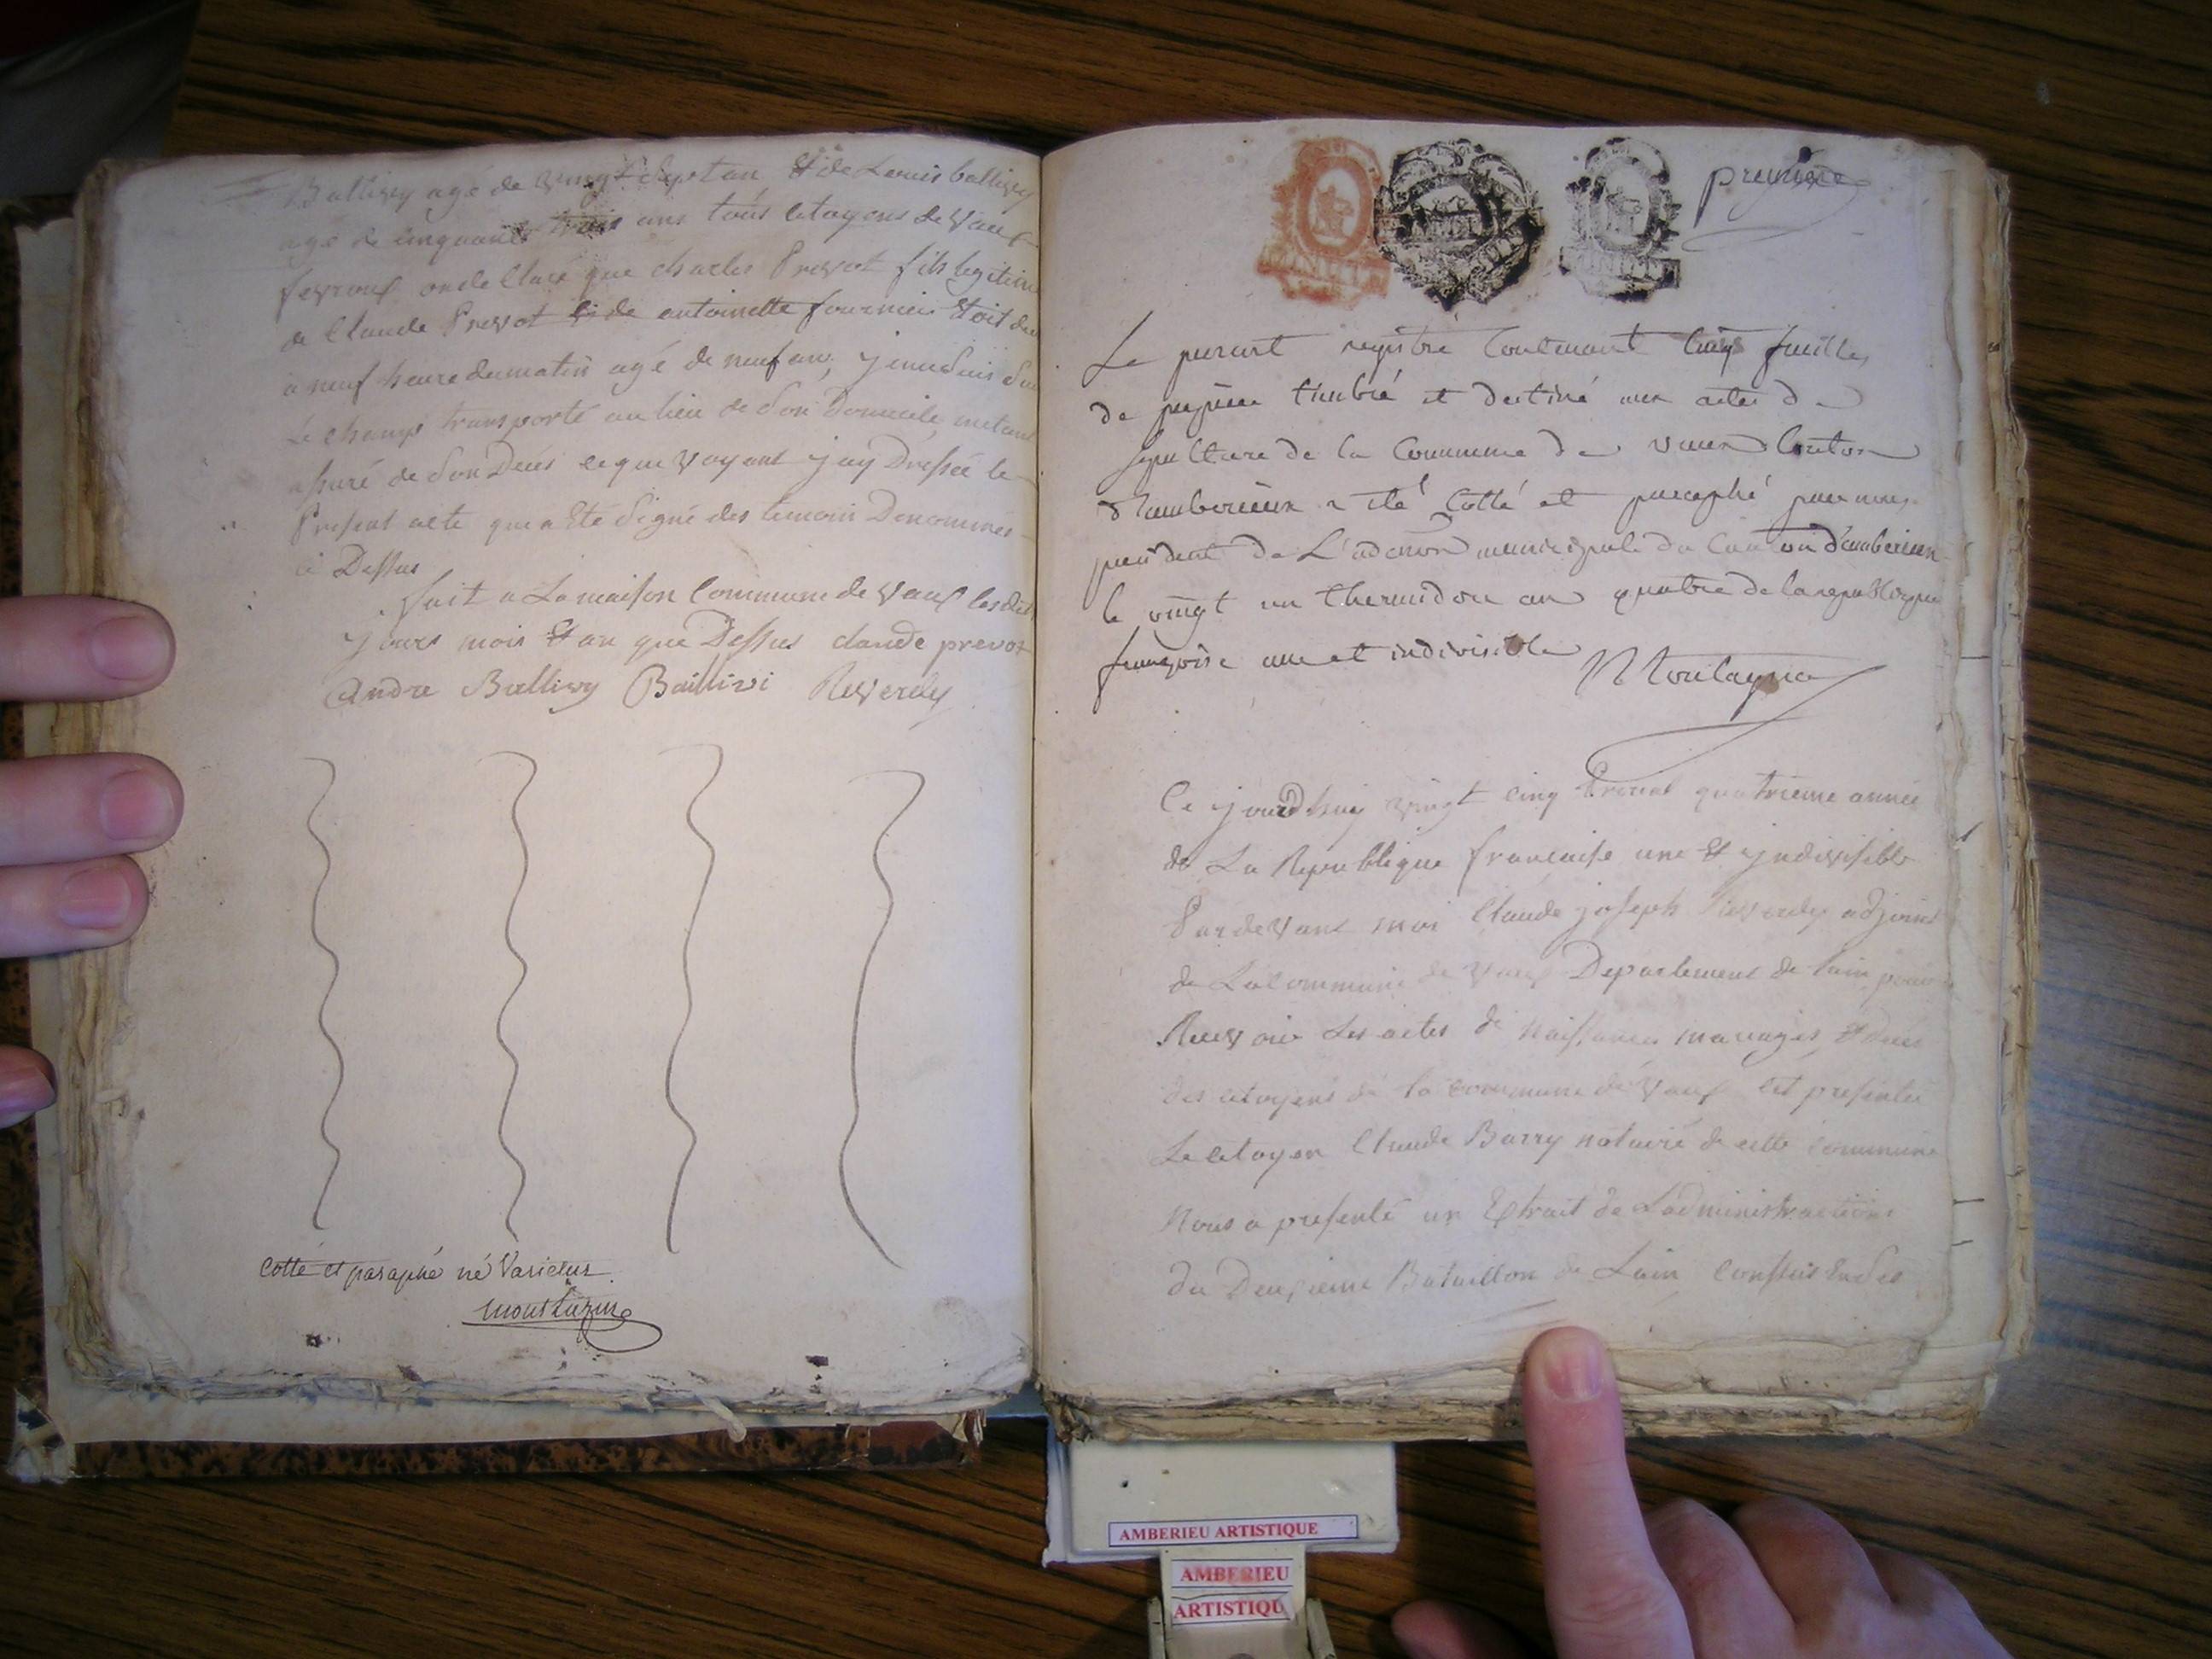 Ballivy agé de vingt Sept an Et de Louis ballivy
agé de cinquante trois ans tous citoyens de Vaux
fevroux on declaré que charles Prevot fils legitim
de Claude Prevot Et de antoinette fournier Etoit
a neuf heure du matin agé de neuf an, j
Le champ transporté au lieu de Son Domicile
assuré de Son Deces ce que voyant j'ay Dressée le
Present acte qui a Eté Signé des temoin Denommés
ci Dessus
fait a La maison Commune de Vaux les dit
jours mois Et an que Dessus claude prevot
andre Ballivy Baillivi Reverdy
Cotté et paraphé né Varietur
premiere
Le present registre Contenant Cinq feuilles
de papier timbré et destiné aux actes de
Sepulture de la Commune de vaux Canton
d'amberieux a eté Cotté et paraphé par nous
president de L'admon municipale du Canton d'amberieux
le vingt un thermidor an quatre de la republique
françoise une et indivisible Montagnat
Ce jourdhuy vingt cinq quatrieme année
de La Republique francaise une Et yndivisible
Pardevant moi Claude joseph Reverdy adjoint
de La Commune de Vaux Departement de lain pour
Recevoir Les actes de Naissances mariages Et deces
des citoyens de la commune de Vaux Est presentée
Le citoyen Claude Barry notaire de cette commune
Nous a presenté un Extrait de Ladministraction
du Deuxieme Bataillon de Lain
AMBERIEU ARTISTIQUE
AMBERIEU
ARTISTIQU